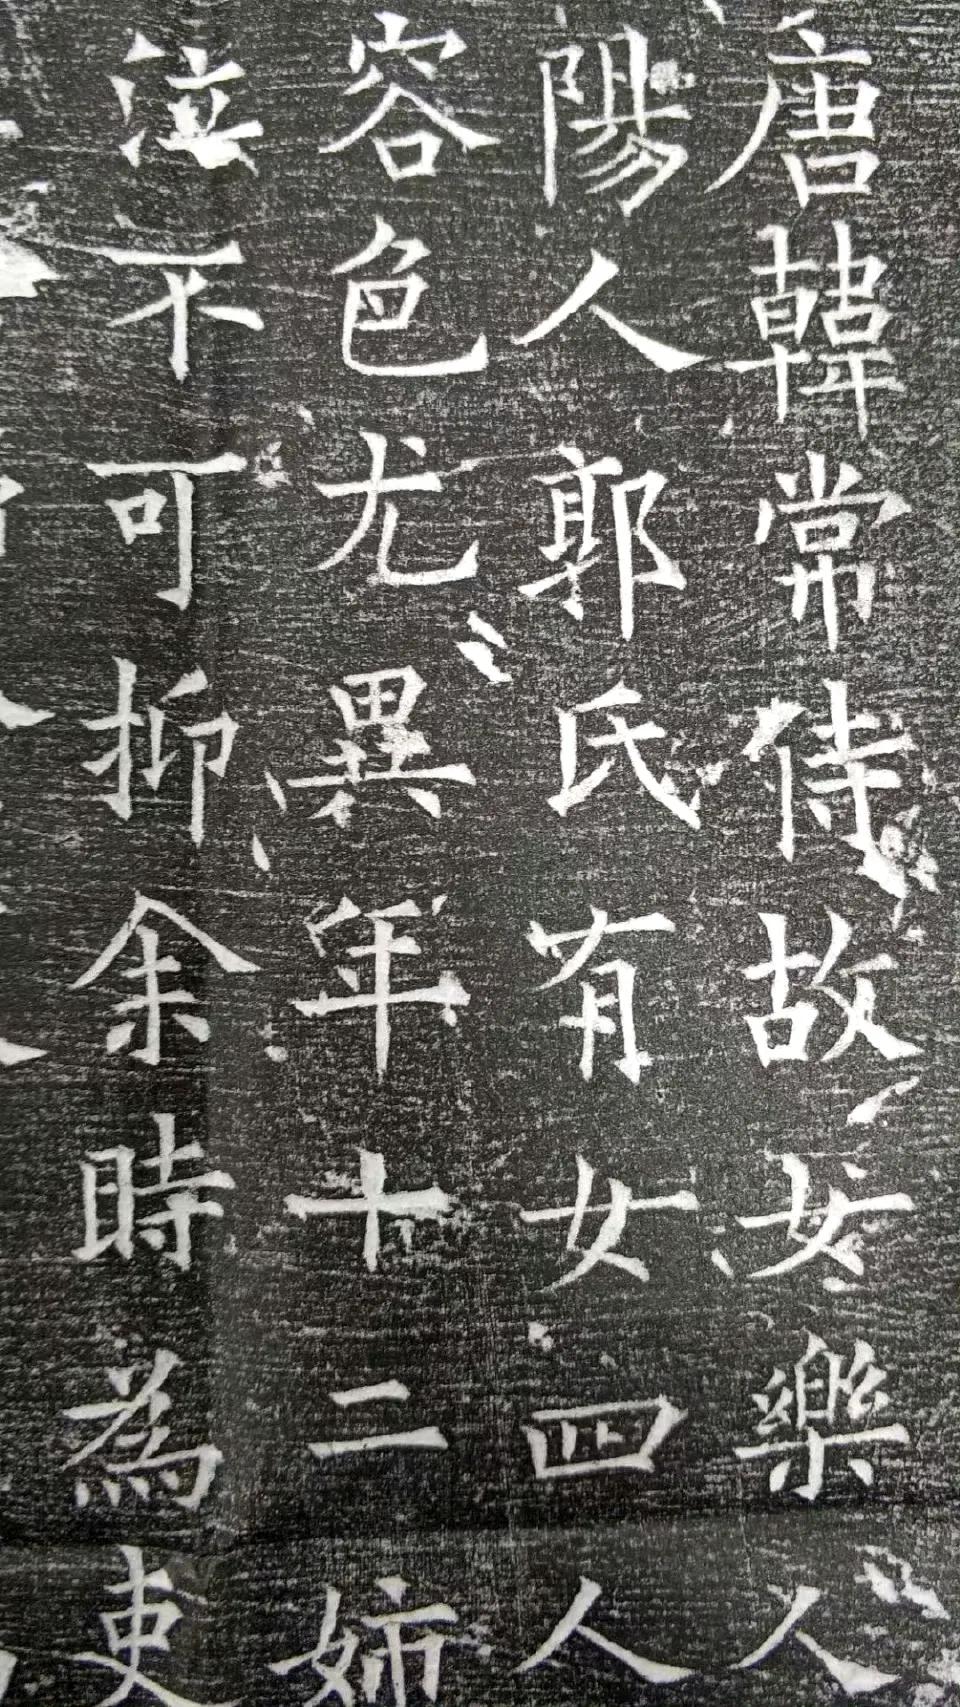 唐韓常侍故妾樂人
陽人郭氏有女四人
容色尤異年十二姉
泣不可抑余時為吏